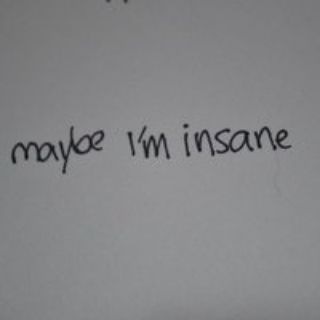 maybe I'm insane